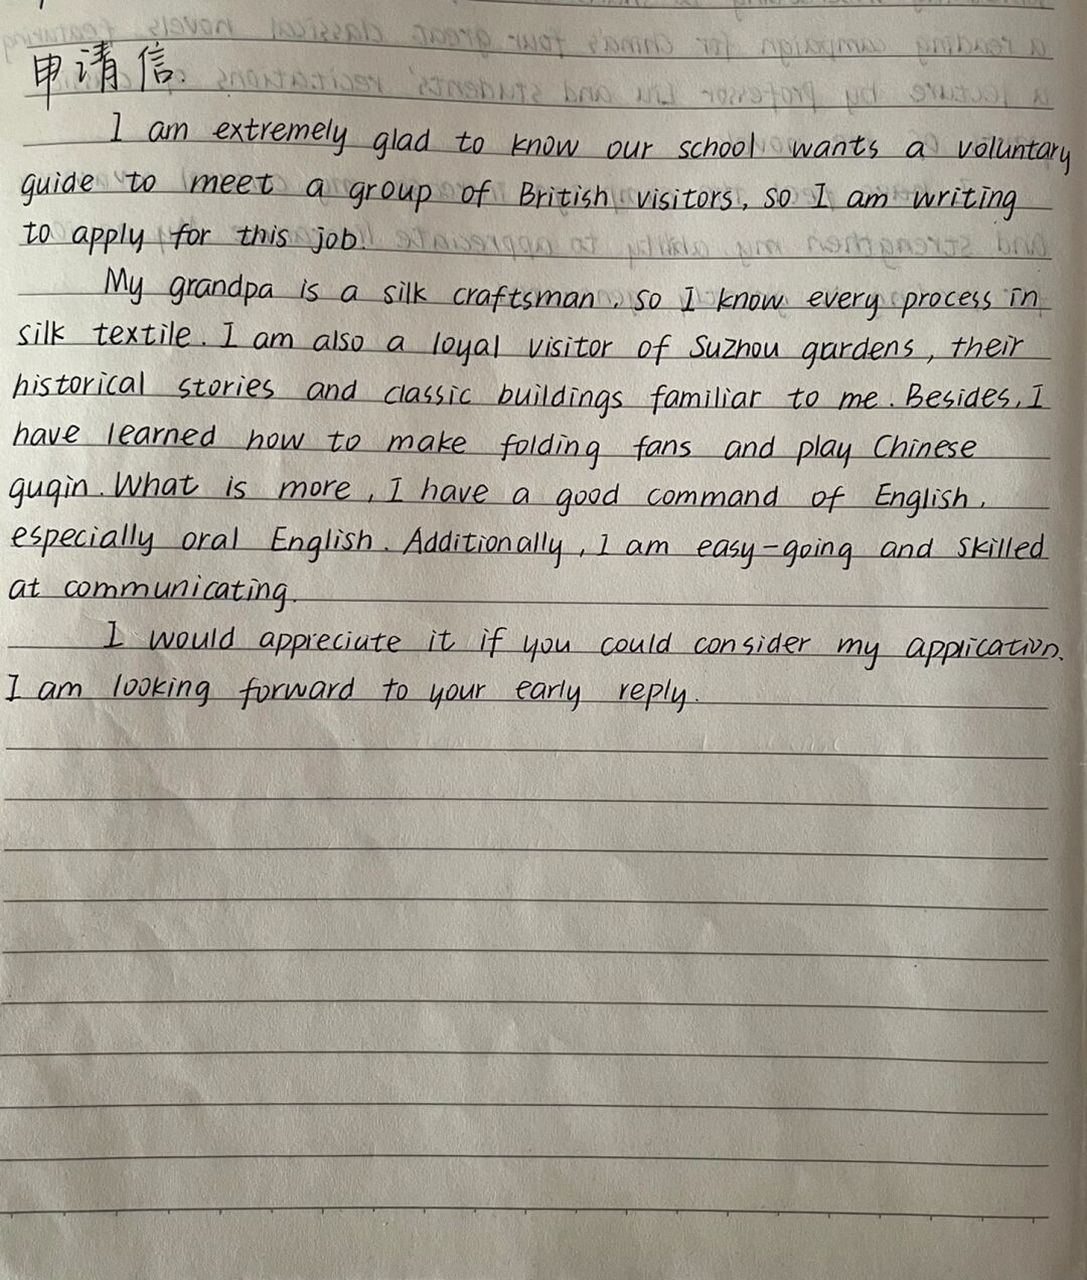 申请信.
I am extremely glad to know our school wants a voluntary
guide to meet a group of British visitors, so I am writing
to apply for this job.
My grandpa is a silk craftsman, so I know every process in
silk textile. I am also a loyal visitor of Suzhou gardens, their
historical stories and classic buildings familiar to me. Besides, I
have learned how to make folding fans and play Chinese
guqin. What is more, I have a good command of English,
especially oral English. Additionally, I am easy-going and skilled
at communicating.
I would appreciate it if you could consider my application.
I am looking forward to your early reply.